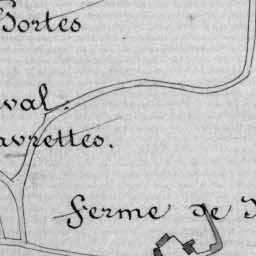 Portes
val.
avrettes.
Ferme de